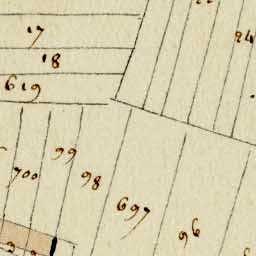 17
24
18
619
99
700
98
697
96